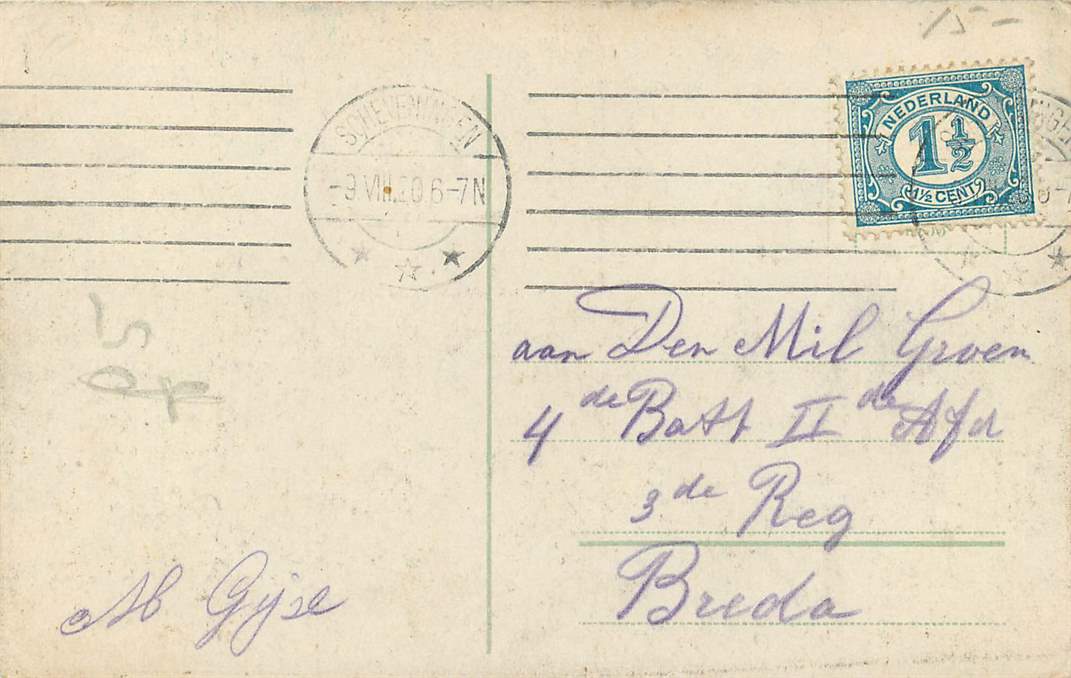 15-
SCHEVENINGEN
-9.VIII.20 6-7N
NEDERLAND
1 1/2
1½ CENT
aan Den Mil Groen
4de Batt II de Afd
3de Reg
Breda
Gijze